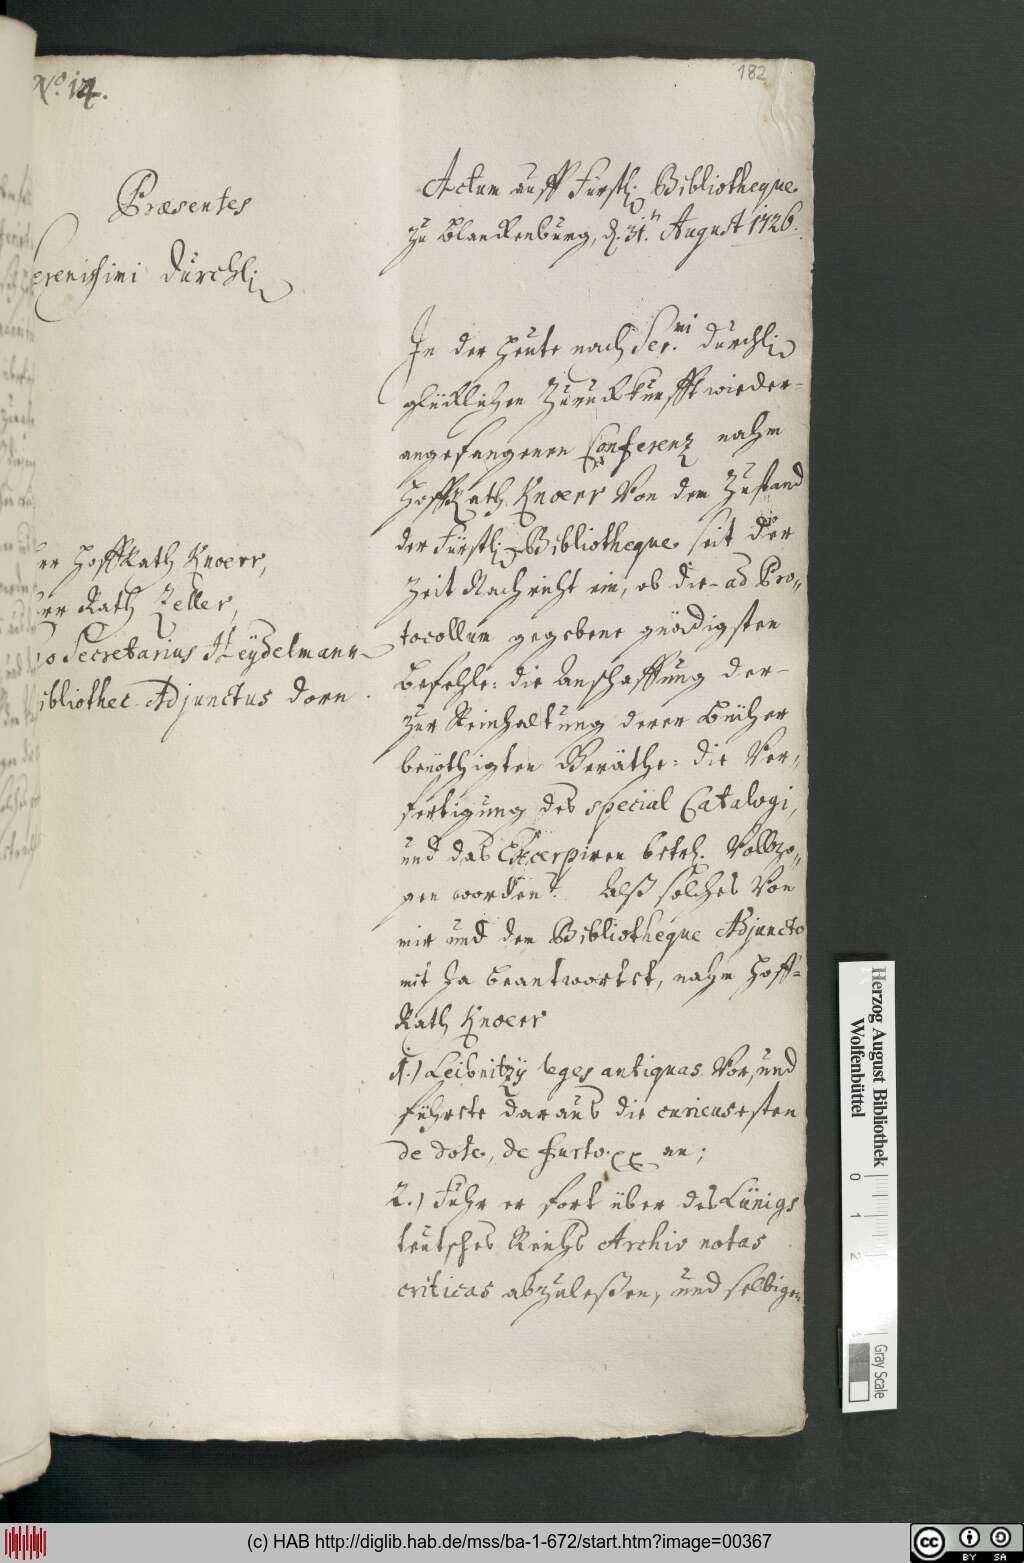 No. 14.
182
Præsentes
Serenissimi Durchl.
Herr HoffRath Knoerr,
Herr Rath Zeller,
Secretarius Heÿdelmann
Bibliothec. Adjunctus Dorn.
Actum auff Fürstl. Bibliotheque
zu Blanckenburg, d. 31.n August 1726.
In der heute nach Ser.mi Durchl.
glücklichen Zurückkunfft wieder-
angefangenen Conferenz nahm
HoffRath Knoerr von dem Zustand
der Fürstl. Bibliotheque seit der
Zeit Nachricht ein, ob die ad Pro„
tocollum gegebene gnädigsten
Befehle: die Anschaffung der
zur Reinhaltung derer Bücher
benöthigten Geräthe: die Ver„
fertigung des special Catalogi,
und das Excerpiren betrl. vollzo„
gen worden? Alß solches von
mir und dem Bibliotheque Adjuncto
mit Ja beantwortet, nahm Hoff-
Rath Knoerr
1.) Leibnitzÿ leges antiquas vor, und
führete daraus die curieusesten
de dote, de furto. an;
2.) Fuhr er fort über des Lünigs
teutsches Reichs Archiv notas
criticas abzuleßen, und selbigen
Herzog August Bibliothek
Wolfenbüttel
0 1 2
Gray Scale
(c) HAB http://diglib.hab.de/mss/ba-1-672/start.htm?image=00367
cc BY SA